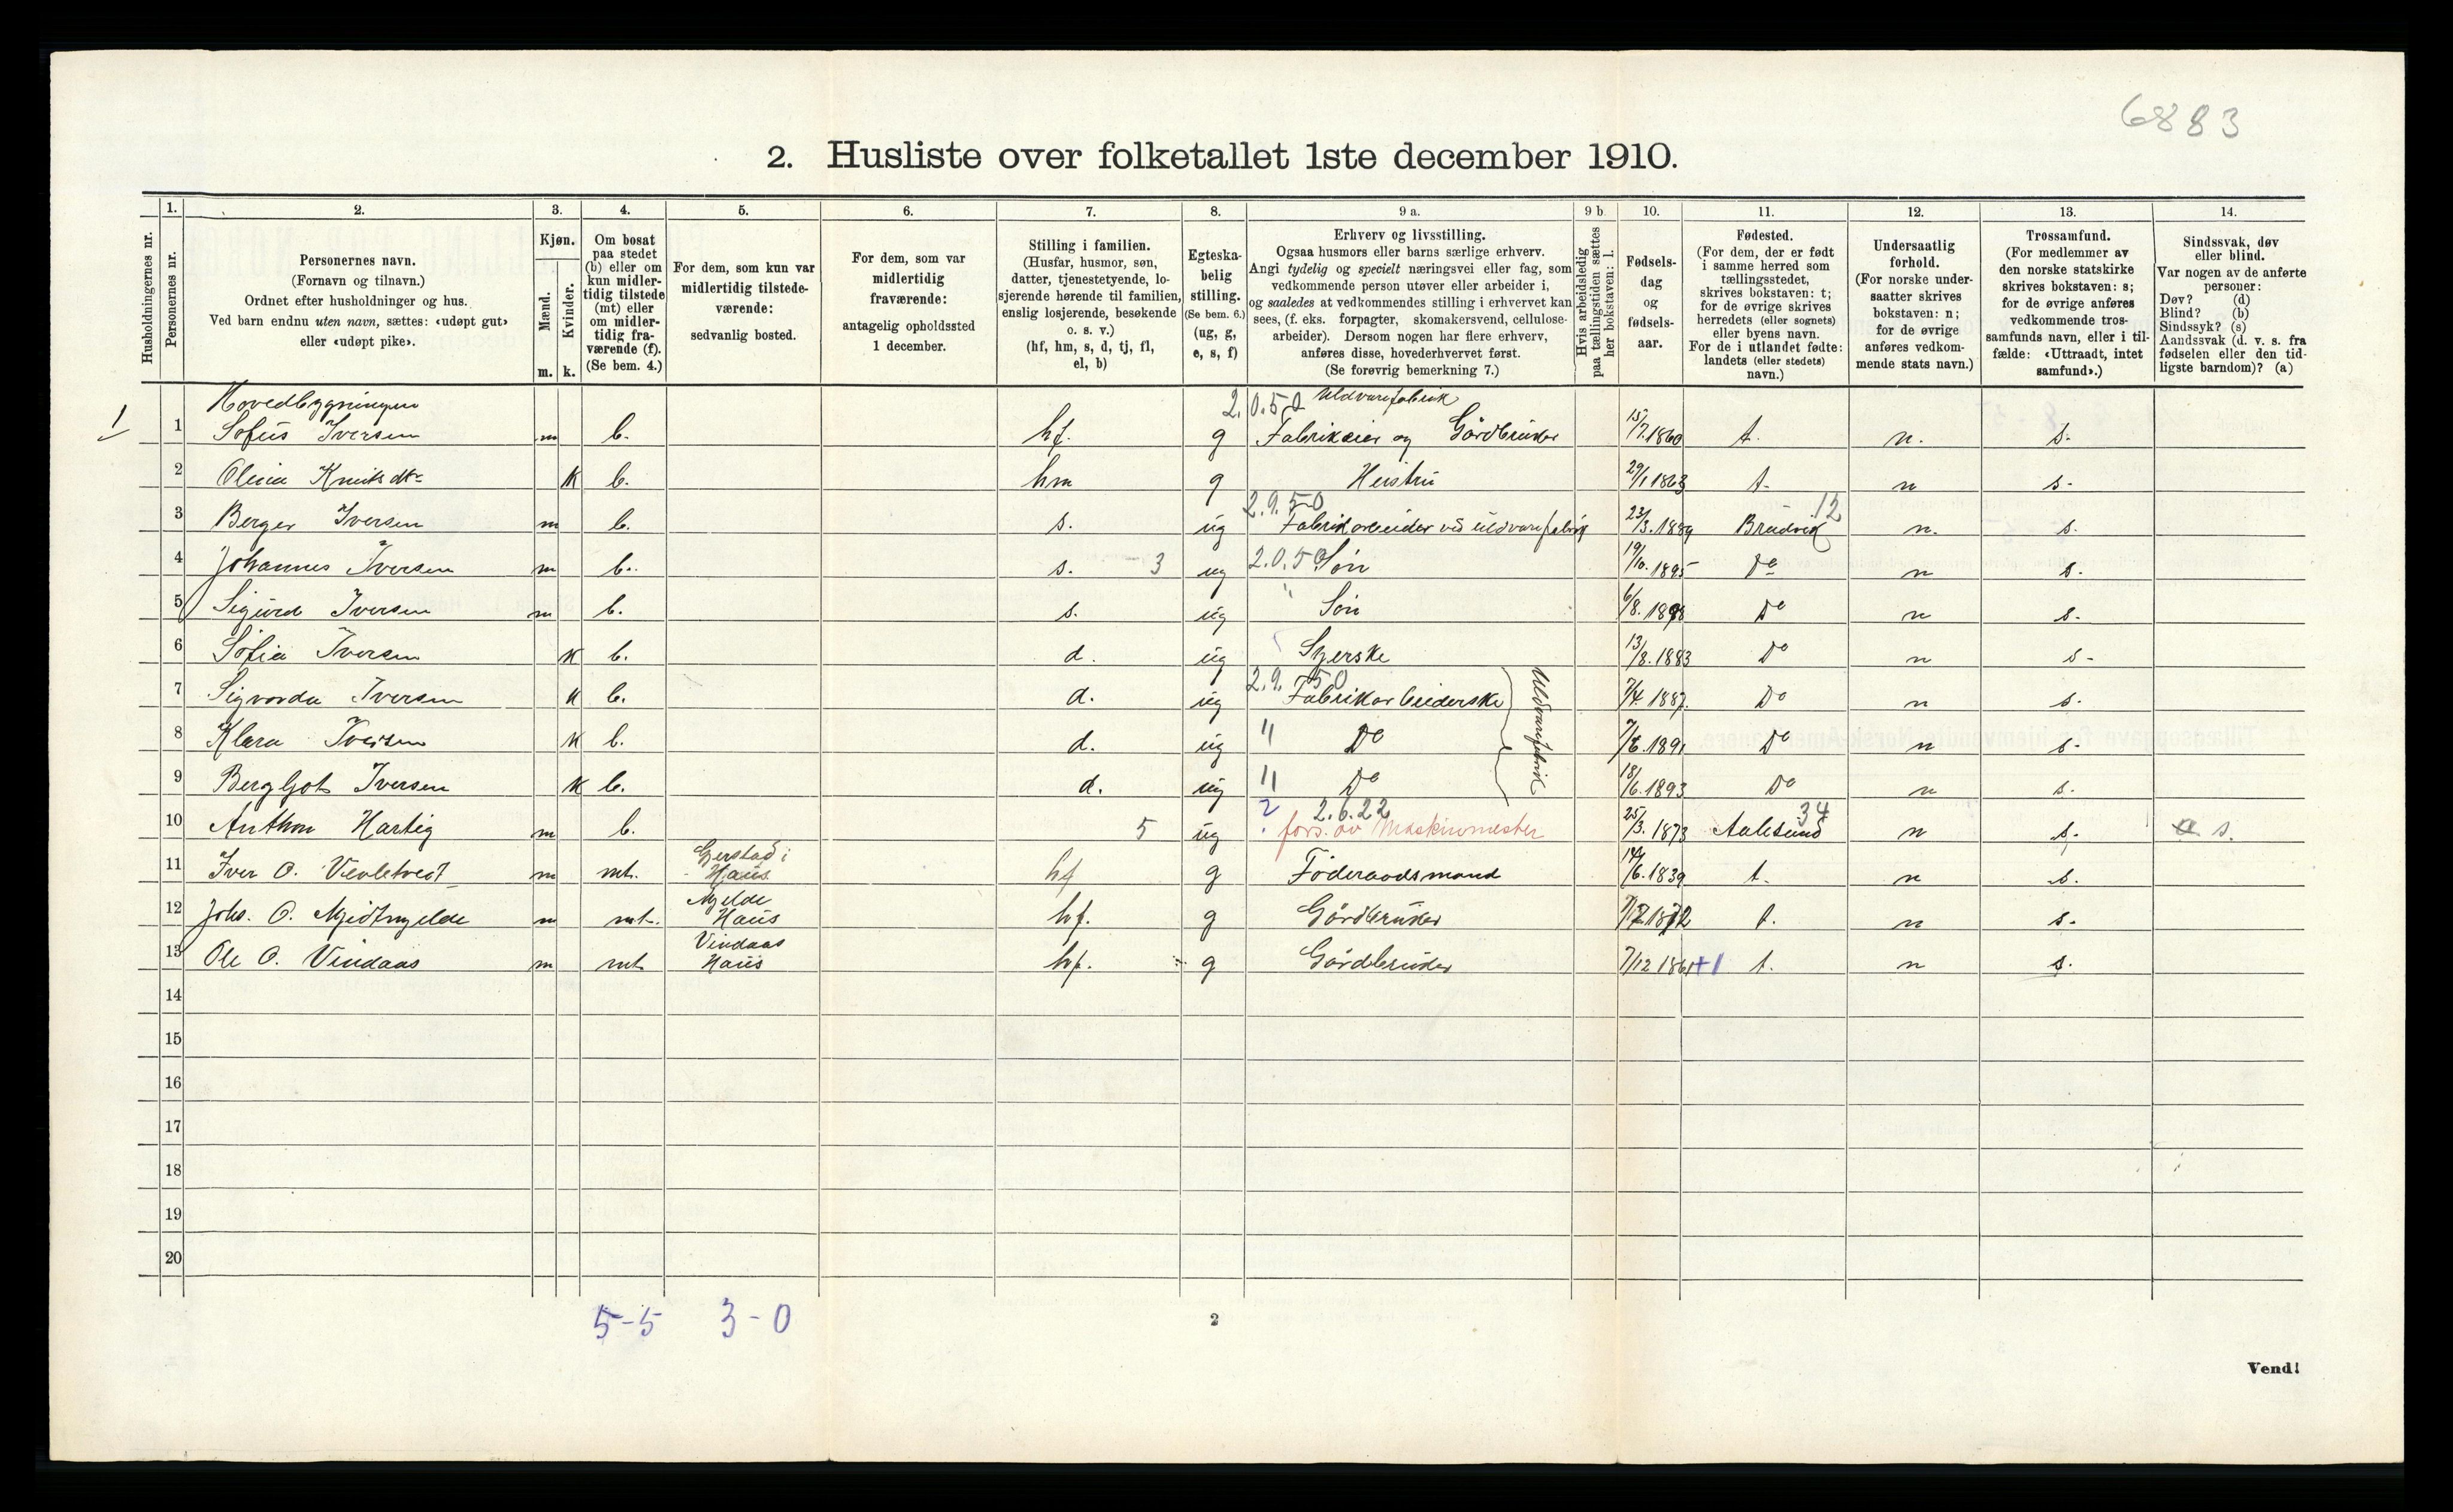 6883
2. Husliste over folketallet 1ste december 1910.
Husholdningernes nr.
1. Personernes nr.
2. Personernes navn.
(Fornavn og tilnavn.)
Ordnet efter husholdninger og hus.
Ved barn endnu uten navn, sættes: «udøpt gut»
eller «udøpt pike».
3. Kjøn.
Mænd. m.
Kvinder. k.
4. Om bosat
paa stedet
(b) eller om
kun midler-
tidig tilstede
(mt) eller
om midler-
tidig fra-
værende (f).
(Se bem. 4.)
5. For dem, som kun var
midlertidig tilstede-
værende:
sedvanlig bosted.
6. For dem, som var
midlertidig
fraværende:
antagelig opholdssted
1 december.
7. Stilling i familien.
(Husfar, husmor, søn,
datter, tjenestetyende, lo-
sjerende hørende til familien,
enslig losjerende, besøkende
o. s. v.)
(hf, hm, s, d, tj, fl,
el, b)
8. Egteska-
belig
stilling.
(Se bem. 6.)
(ug, g,
e, s, f)
9 a. Erhverv og livsstilling.
Ogsaa husmors eller barns særlige erhverv.
Angi tydelig og specielt næringsvei eller fag, som
vedkommende person utøver eller arbeider i,
og saaledes at vedkommendes stilling i erhvervet kan
sees, (f. eks. forpagter, skomakersvend, cellulose-
arbeider). Dersom nogen har flere erhverv,
anføres disse, hovederhvervet først.
(Se forøvrig bemerkning 7.)
9 b. Hvis arbeidsledig
paa tællingstiden sættes
her bokstaven: l.
10. Fødsels-
dag
og
fødsels-
aar.
11. Fødested.
(For dem, der er født
i samme herred som
tællingsstedet,
skrives bokstaven: t;
for de øvrige skrives
herredets (eller sognets)
eller byens navn.
For de i utlandet fødte:
landets (eller stedets)
navn.)
12. Undersaatlig
forhold.
(For norske under-
saatter skrives
bokstaven: n;
for de øvrige
anføres vedkom-
mende stats navn.)
13. Trossamfund.
(For medlemmer av
den norske statskirke
skrives bokstaven: s;
for de øvrige anføres
vedkommende tros-
samfunds navn, eller i til-
fælde: «Uttraadt, intet
samfund».)
14. Sindssvak, døv
eller blind.
Var nogen av de anførte
personer:
Døv? (d)
Blind? (b)
Sindssyk? (s)
Aandssvak (d. v. s. fra
fødselen eller den tid-
ligste barndom)? (a)
Hovedbygningen 2.0.50 Uldvarefabrik
1 1 Sofus Iversen m b. hf. g Fabrikeier og Gårdbruker 15/7.1860 t. n. s.
2 Olina Knutsdtr k b. hm g Hustru 29/1 1863 t. n s.
2.9.50 12
3 Berger Iversen m b. s. ug Fabrikarbeider ved uldvarefabrik 23/3.1889 Brudvik n. s.
4 Johannes Iversen m b. s. 3 ug 2.0.50 Søn 19/10.1895 Do n s.
5 Sigurd Iversen m b. s. ug " Søn 6/8.1898 Do n s.
6 Sofia Iversen k b. d. ug Syerske 13/8.1883 Do n s.
2.9.50
7 Sigvarda Iversen k b. d. ug Fabrikarbeiderske 7/4.1887. Do n s.
Uldvarefabrik
8 Klara Iversen k b. d. ug " Do 7/6.1891 Do n s.
9 Bergljot Iversen k b. d. ug " Do 18/6.1893 Do n s.
? 2.6.22 34
10 Anthon Hartig m b. 5 ug fors. av Maskinmester 25/3.1873 Aalesund n s. a s.
Gjerstad i
11 Iver O. m mt. Haus hf g Föderaadsmand 14/6.1839 t. n s.
Mjelde
12 Johs. O. Midtmjelde m mt. Haus hf. g Gårdbruker 1872 t. n s.
Vindaas
13 Ole O. Vindaas m mt Haus hf. g Gårdbruker 7/12 1861 +1 t. n s.
14
15
16
17
18
19
20
5-5 3-0
2
Vend!